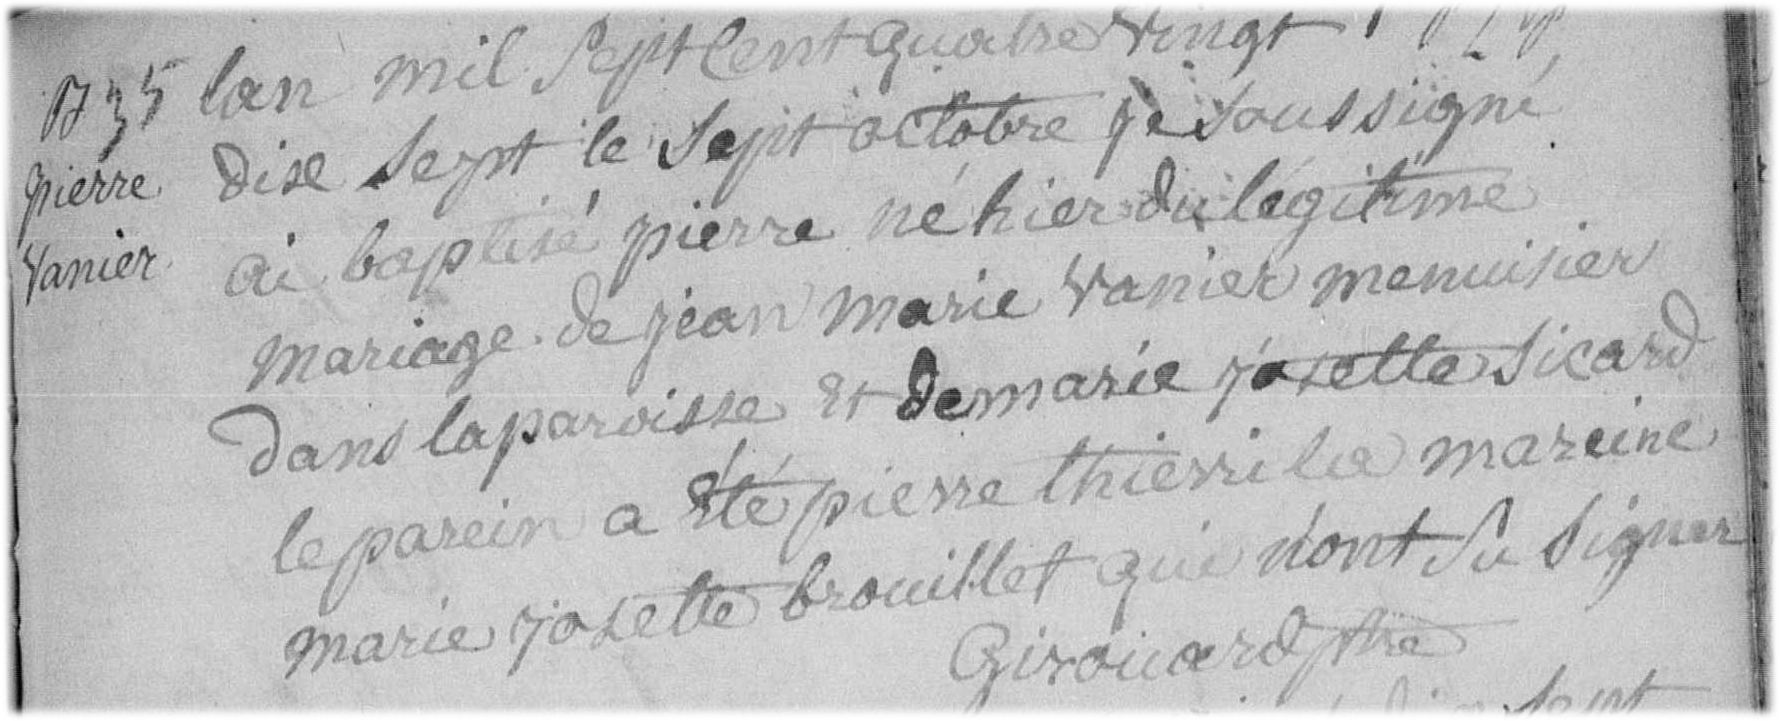 B35
pierre
vanier
lan mil sept cent quatre vingt
dise sept le sept octobre je soussigné
ai baptisé pierre né hier du légitime
mariage de jean marie vanier menuisier
dans la paroisse et de marie josette sicard
le parein a été pierre thierri la mareine
marie josette brouillet qui n'ont su signer
Girouard ptre
sept